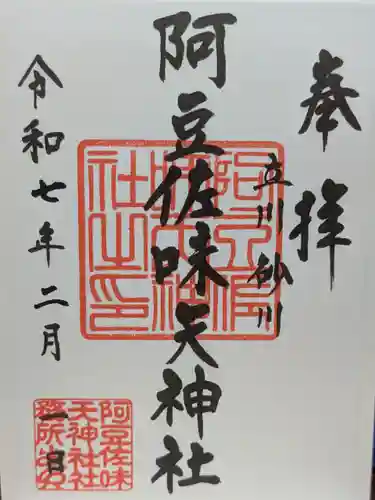 奉拝
立川砂川
阿豆佐味天神社
令和七年二月
一日
阿豆佐味
天神社社
務所之印